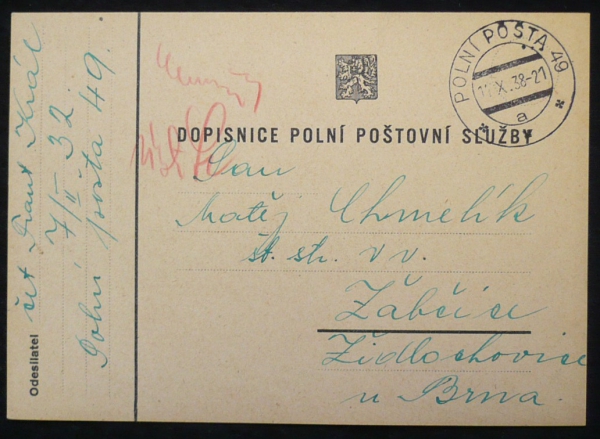 POLNÍ POŠTA 49
11.X.38-21
a
DOPISNICE POLNÍ POŠTOVNÍ SLUŽBY
Pan
Matěj Chmelík
št. str. v v.
Žabčice
Židlochovice
u Brna.
Odesílatel
čet Frant Král
7/II 32
Polní pošta 49.